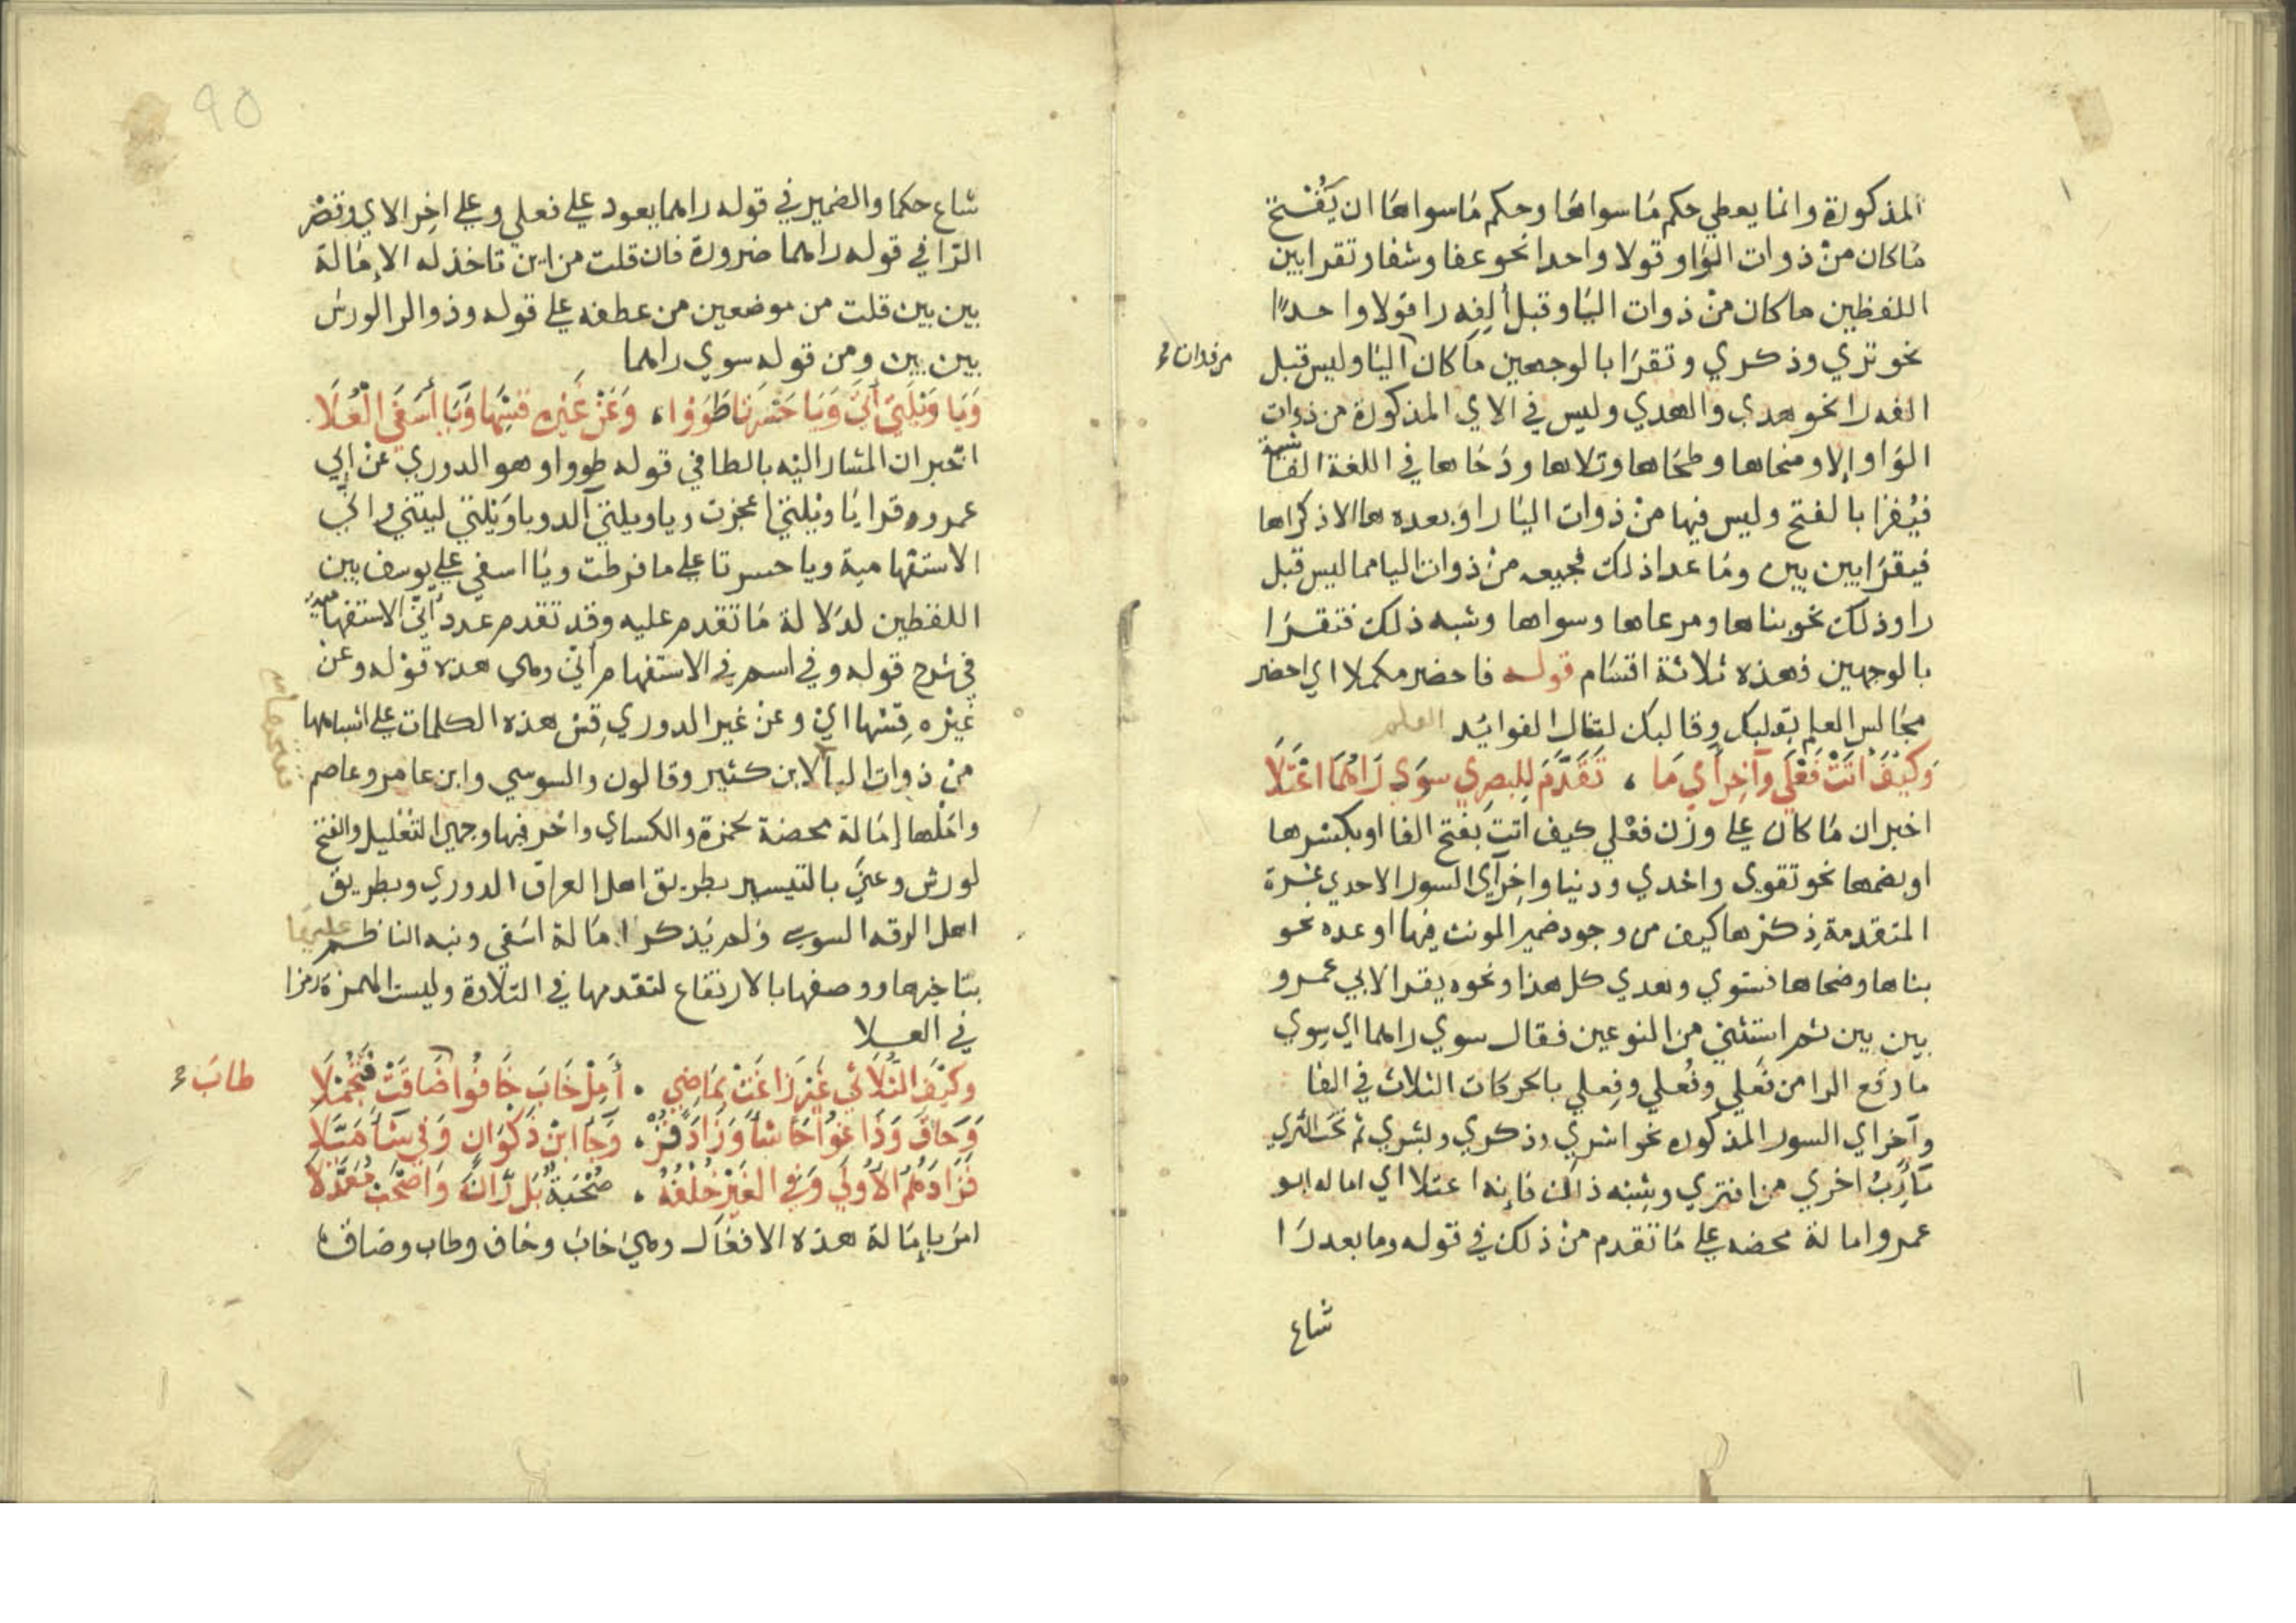 المذكورة وانما يعطي حكم مَا سواهَا وحكم مَا سواهَا ان يَفْتح
مَا كان منْ ذوات الوَاو قولا واحدا نحو عفا وشفا وتقرا بين
اللفظين ما كان منْ ذوات اليَا وقبل ألِفِه را قولا واحدًا
نحو تري وذكري وتقرَا بالوجهين مَا كان اليَا وليس قبل
الفه را نحو هدي والهدي وليس في الاي المذكورة من ذوات
الوَاو إلا وضحاها وطحَاها وتلاها ودَحَاها في اللغة الفَاشية
فيُقرَا بالفتح وليس فيها منْ ذوات اليَا را وَبعده ها الا ذكرَاها
فيقرَا بين بين ومَا عدا ذلك فجميعه منْ ذوات اليا مما ليس قبل
را وذلك نحو بناها ومرعاها وسواها وشبه ذلك فتقرَا
بالوجهين فهذه ثلاثة اقسَام قوله فاحضر مكملا اي احضر
مجَالس العلم بقلبك وقالبك لتنال الفوائد العلم
وَكَيْفَ اتَتْ فَعْلَي وآخِرُ آي مَا ، تَقَدَّمَ لِلبصرِي سوَي رَاهُمَا اعْتَلَا
اخبر ان مَا كان علي وزن فعْلي كيف اتت بفتح الفا او بكسْرها
او بضمها نحو تقوي واحدي ودنيا واخِر آي السور الاحدي عشرة
المتقدمة ذِكْرها كيف من وجود ضمير المونث فيها او عدمه نحو
بناها وضحاها فستوي وهدي كل هذا ونحوه يقرا لابي عمرو
بين بين ثم استثني من النوعين فقال سوي راهما اي سِوي
ما وقع الرا من فَعلي وفُعلي وفِعلي بالحركات الثلاث في الفا
وآخر اي السور المذكوره نحو اشري وذكري وبشري ثم تحَت الثري
مَأربُ اخري من افتري وشِبْه ذلك فإنه اعتلا اي اماله ابو
عمرو امالة محضه علي مَا تقدم منْ ذلك في قوله وما بعد رَا
شاع
90
شاع حكما والضمير في قوله راهما يعود علي فعلي وعلي اخِر الاي وقصْر
الرّا في قوله راهما ضرورة فان قلت من اين تاخذ له الامَالة
بين بين قلت من موضعين من عطفه علي قوله وذو الرا لورش
بين بين ومن قوله سوي راهما
وَيَا وَيْلَتَي أَنَّي وَيَا حَسْرَتَا طَوَوْا ، وَعَنْ غَيْرِهِ قِسْهَا وَيَا أَسَفَي الْعُلَا
اخبر ان المشار اليْه بالطا في قوله طووا وهو الدوري عنْ ابي
عمرو قرا يَا ويْلتي اعجزت ويا ويلتي آلد ويا وَيْلتي ليتني وانّي
الاستفهامية ويا حسرتا علي ما فرطت ويَا اسفي علي يوسف بين
اللفظين لدَلالة مَا تقدم عليه وقد تقدم عدد أنّي الاستفهَامية
في شرح قوله وفي اسم في الاستفهام أنّي وهي هذه قوْله وعن
غيْره قِسْها ايْ وعنْ غير الدوري قِسْ هذه الكلمات علي اشباهها
منْ ذوات اليا لابن كثير وقالون والسوسي وابن عامر وعاصم
وامْلها إمَالة محضة لحمزة والكساي واخر فيها وجهي التقليل والفتح
لورش وعنَي بالتيسير بطريق اهل العراق الدوري وبطريق
اهل الرقه السوسي ولم يَذكر امَالة اسَفي ونبه الناظم عليهَا
بتاخرها ووصفها بالارتفاع لتقدمها في التلاوة وليست الهمزة رمزا
في العلا
وكَيْفَ الثُّلاَثي غَيْرَ زَاغَتْ بمَاضِي ، أَمِلْ خَابَ خَافُوا ضَاقَتْ فَتُجْمِلَا
وَحَاقَ وَزَاغُوا جَا شَا وَزَادَ فُزْ ، وَجَا ابْنُ ذَكْوَان وَفي شَا مَيَّلا
فَزَادَهُمُ الأُولَي وَفي الغَيْرِ خُلْفُهُ ، صُحْبَةٌ بَل رَّانَ وَاصْحَبْ مُعَدَّلا
امَرَ بإمَالة هذه الافعَال وهي خابَ وخَاف وطاب وضاق
طابَ